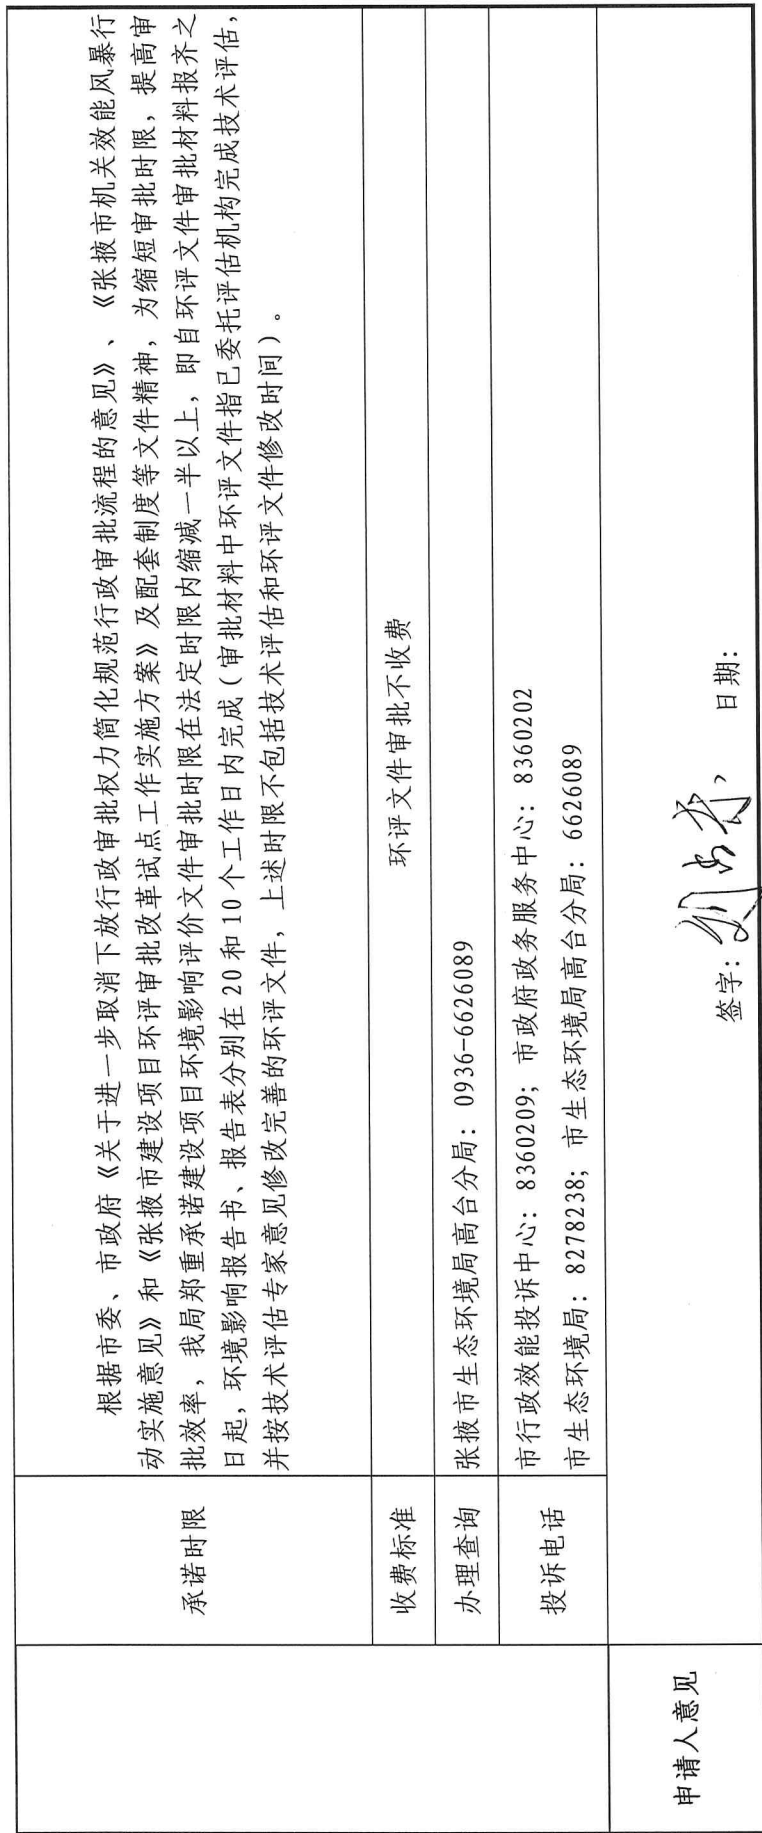 承诺时限
根据市委、市政府《关于进一步取消下放行政审批权力简化规范行政审批流程的意见》、《张掖市机关效能风暴行
动实施意见》和《张掖市建设项目环评审批改革试点工作实施方案》及配套制度等文件精神，为缩短审批时限，提高审
批效率，我局郑重承诺建设项目环境影响评价文件审批时限在法定时限内缩减一半以上，即自环评文件审批材料报齐之
日起，环境影响报告书、报告表分别在20和10个工作日内完成（审批材料中环评文件指已委托评估机构完成技术评估，
并按技术评估专家意见修改完善的环评文件，上述时限不包括技术评估和环评文件修改时间）。
收费标准
环评文件审批不收费
办理查询
张掖市生态环境局高台分局：0936-6626089
投诉电话
市行政效能投诉中心：8360209；市政府政务服务中心：8360202
市生态环境局：8278238；市生态环境局高台分局：6626089
申请人意见
签字： 日期：